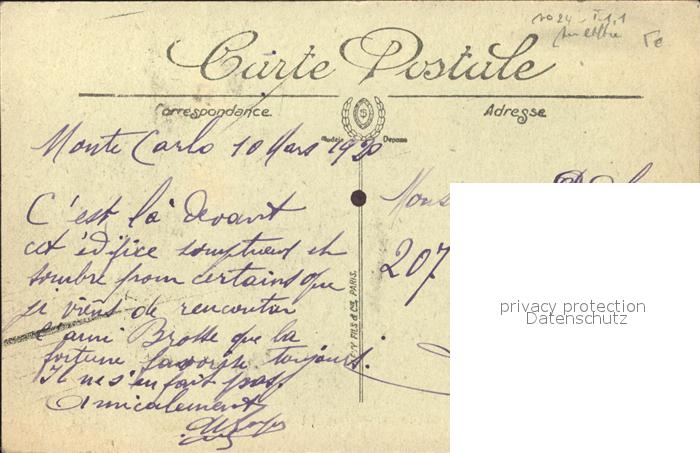 Carte Postale
Correspondance.
Adresse
Modèle Déposé
Monte Carlo 10 Mars 1920
C'est là devant
cet édifice somptueux et
sombre pour certains que
je viens de rencontrer
l'ami Brosse que la
fortune favorise toujours.
Il ne s'en fait pas
Amicalement
Mons
207
V. FILS & Cie PARIS.
privacy protection
Datenschutz